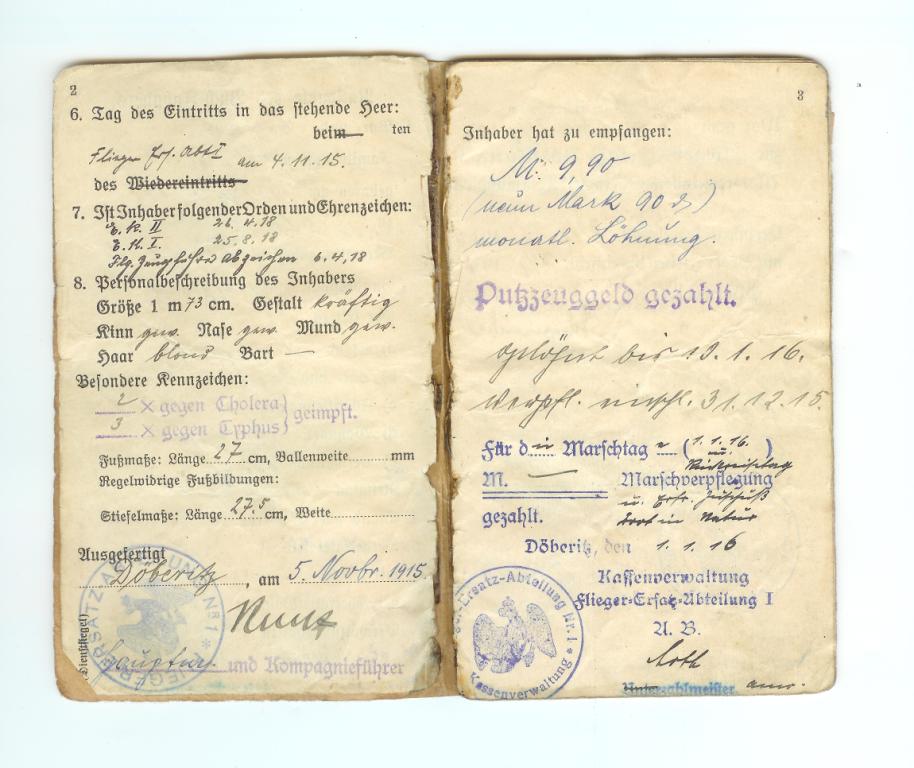 2
6. Tag des Eintritts in das stehende Heer:
beim ten
Flieger Ers. Abt I am 4.11.15.
des Wiedereintritts
7. Ist Inhaber folgender Orden und Ehrenzeichen:
E. K. II 26.4.18
E. K. I. 25.8.18
Flg. Zeugführer Abzeichen 6.4.18
8. Personalbeschreibung des Inhabers
Größe 1 m 73 cm. Gestalt kräftig
Kinn gew. Nase gew. Mund gew.
Haar blond Bart —
Besondere Kennzeichen:
2 X gegen Cholera } geimpft.
3 X gegen Typhus
Fußmaße: Länge 27 cm, Ballenweite mm
Regelwidrige Fußbildungen:
Stiefelmaße: Länge 27.5 cm, Weite
Ausgefertigt
Döberitz, am 5. Novbr. 1915.
(Dienstsiegel)
FLIEGER ERSATZ ABTEILUNG Nr 1
Hauptm. und Kompagnieführer
3
Inhaber hat zu empfangen:
M. 9,90
(neun Mark 90 ₰)
monatl. Löhnung.
Putzzeuggeld gezahlt.
gelöhnt bis 10.1.16.
Verpfl. einschl. 31.12.15.
Für d en Marschtag (1.1.16.)
M. — Marschverpflegung
gezahlt.
Brot in Natur
Döberitz, den 1.1.16
Kassenverwaltung
Flieger-Ersatz-Abteilung I
A. B.
Roth
Unterzahlmeister
Flieger-Ersatz-Abteilung Nr. 1 * Kassenverwaltung *